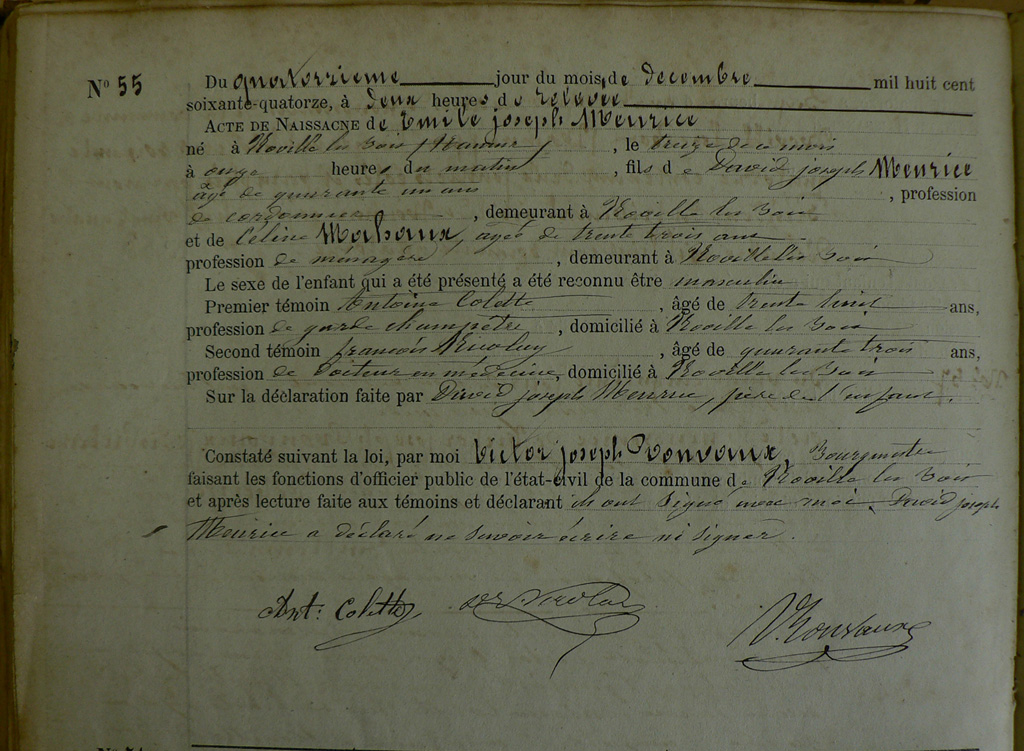 N° 55
Du quatorzieme jour du mois de decembre mil huit cent
soixante-quatorze, à deux heures de relevée
ACTE DE NAISSACNE de Emile joseph Meurice
né à Noville les Bois, le treize de ce mois
à onze heures du matin, fils de David joseph Meurice
âgé de quarante un ans, profession
de cordonnier, demeurant à Noville les Bois
et de Céline Mahaux, agée de trente trois ans
profession de ménagère, demeurant à Noville les Bois
Le sexe de l'enfant qui a été présenté a été reconnu être masculin
Premier témoin Antoine Colette, âgé de trente huit ans,
profession de garde champêtre, domicilié à Noville les Bois
Second témoin françois Nicolay, âgé de quarante trois ans,
profession de Docteur en médecine, domicilié à Noville les Bois
Sur la déclaration faite par David joseph Meurice, père de l'enfant.
Constaté suivant la loi, par moi Victor joseph Bourgmestre
faisant les fonctions d'officier public de l'état-civil de la commune de Noville les Bois
et après lecture faite aux témoins et déclarant ils ont signé avec moi. David joseph
Meurice a déclaré ne savoir écrire ni signer.
Ant: Colette